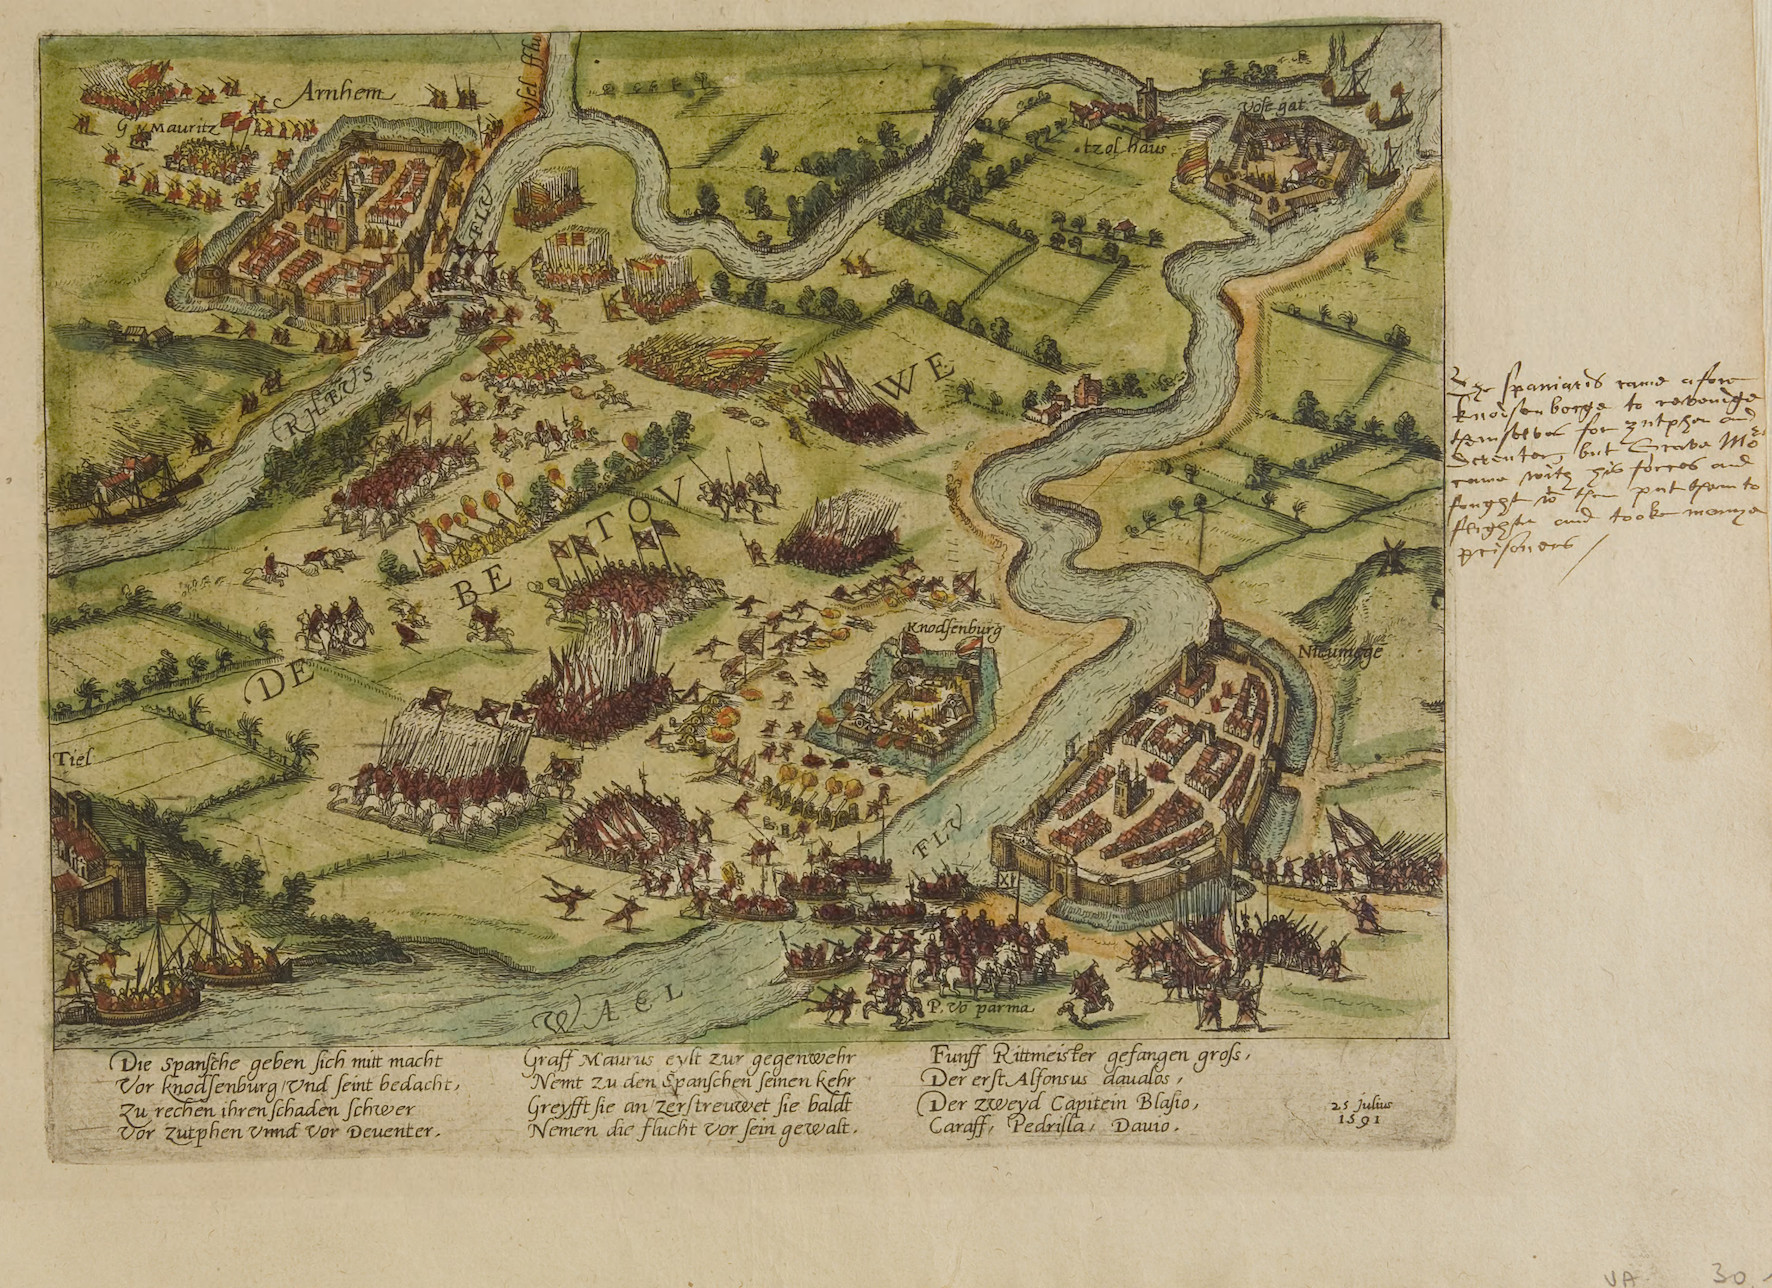 Arnhem
G. v. Mauritz
ysel flu
FLV
RHEUS
tzol haus
Vost gat
DE BETOVWE
Knodsenburg
Nieumege
Tiel
FLV
WAEL
P. vo parma
Die Spansche geben sich mitt macht
Vor knodsenburg vnd seint bedacht,
Zu rechen ihren schaden schwer
Vor Zutphen vnnd vor Deuenter.
Graff Maurus eylt zur gegenwehr
Nemt zu den Spanschen seinen kehr
Greyfft sie an zerstreuwet sie baldt
Nemen die flucht vor sein gewalt.
Funff Rittmeister gefangen gross,
Der erst Alfonsus daualos,
Der zweyd Capitein Blasio,
Caraff, Pedrilla, Dauio.
25 Julius
1591
The spaniards came afore
Knodsenborge to revenge
themselves for zutphen and
Deventer, but Grave Mo
came with his forces and
fought wt them put them to
flighte and tooke manye
prisoners /
VA 30